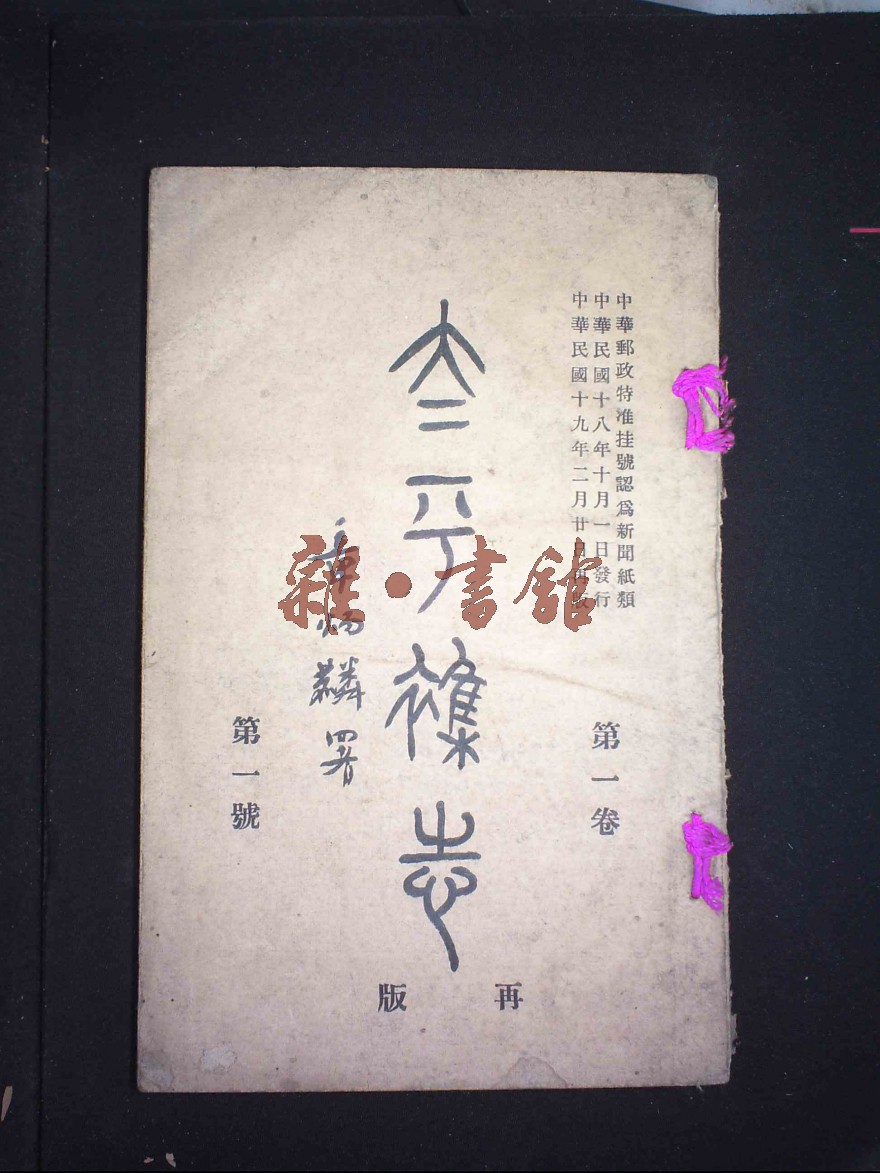 中華郵政特准挂號認爲新聞紙類
中華民國十八年十月一日發行
中華民國十九年二月廿日再版
第一卷
太平雜志
章炳麟署
第一號
再版
雜·書館